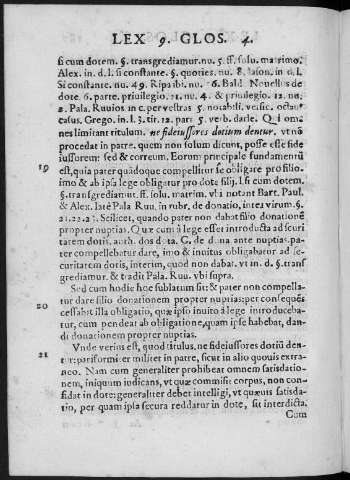 LEX 9. GLOS. 4.
si cum dotem. §. transgrediamur. nu. 5. ff. solu. matrimo.
Alex. in. d. l. si constante. §. quoties. nu. 8. Iason. in d. l.
Si constante. nu. 49. Ripa ibi. nu. 6. Bald. Nouellus de
dote. 6. parte. priuilegio. 21. nu. 4. & priuilegio. 12. nu.
2. Pala. Ruuios in c. per vestras 5. notabili. versic. octauꝰ
casus, Grego. in l. 3. tir. 12. par. 5. verb. darle. Qui om-
nes limitant titulum. ne fideiussores dotium dentur. vt nō
procedat in patre. quem non solum dicunt, posse esse fide
iussorem: sed & correum. Eorum principale fundamentū
19 est, quia pater quādoque compellitur se obligare pro filio.
imo & ab ipsa lege obligatur pro dote filij. l. si cum dotem.
§. transgrediamur. ff. solu. matrim. vbi notant Bart. Paul.
& Alex. latè Pala Ruu. in rubr. de donatio, inter virum. §.
21. 22. 23. Scilicet, quando pater non dabat filio donationē
propter nuptias. Quæ cum à lege esset introducta ad secu-
ritatem dotis, auth. dos data. C. de dona ante nuptias. pa-
ter compellebatur dare, imo & inuitus obligabatur ad se-
curitatem dotis, interim, quod non dabat. vt in. d. §. trans
grediamur. & tradit Pala. Ruu. vbi supra.
Sed cum hodie hoc sublatum sit: & pater non compella-
tur dare filio donationem propter nuptias: per consequēs
20 cessabit illa obligatio, quæ ipso inuito à lege introduceba-
tur, cum pendeat ab obligatione, quam ipse habebat, dan-
di donationem propter nuptias.
Vnde verius est, quod titulus, ne fideiussores dotiū den-
21 tur: pariformiter militet in patre, sicut in alio quouis extra-
neo. Nam cum generaliter prohibeat omnem satisdatio-
nem, iniquum iudicans, vt quæ commisit corpus, non con-
fidat in dote: generaliter debet intelligi, vt quæuis satisda-
tio, per quam ipsa secura reddatur in dote, sit interdicta.
Cum